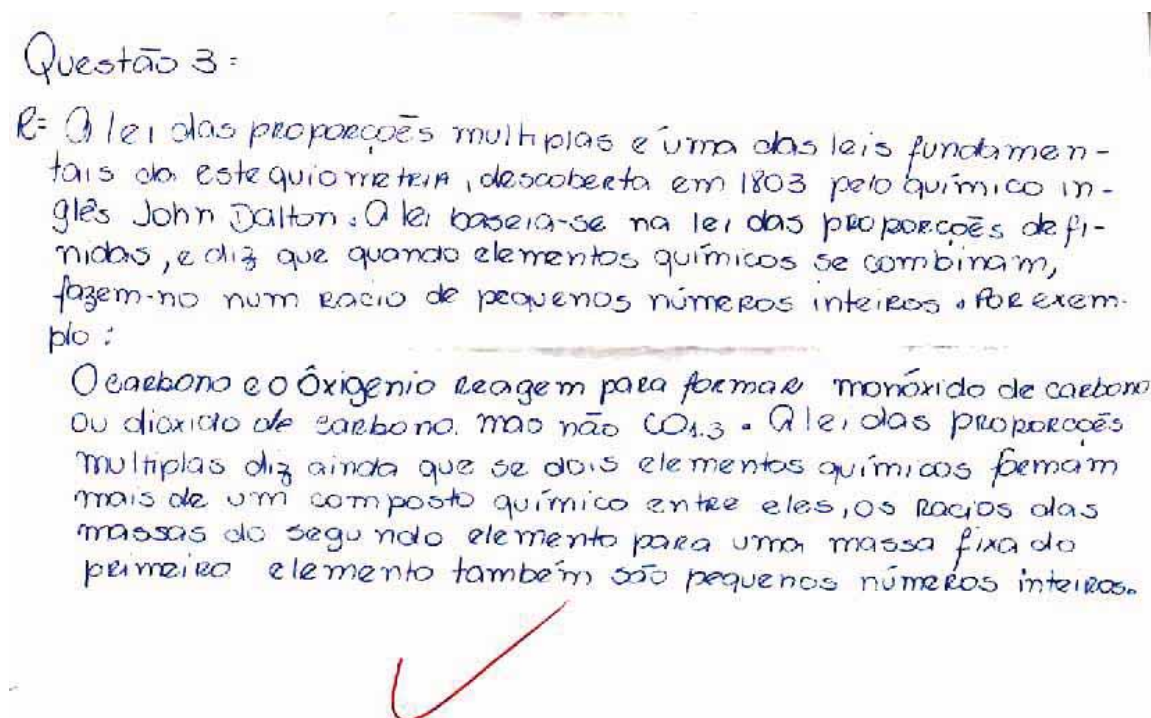 Questão 3:
R: A lei das proporções multiplas é uma das leis fundamen-
tais da estequiometria, descoberta em 1803 pelo químico in-
glês John Dalton. A lei baseia-se na lei das proporções defi-
nidas, e diz que quando elementos químicos se combinam,
fazem-no num racio de pequenos números inteiros. Por exem-
plo:
O carbono e o Óxigenio reagem para formar monóxido de carbono
ou dioxido de carbono. mas não CO1.3. A lei das proporções
multiplas diz ainda que se dois elementos químicos formam
mais de um composto químico entre eles, os racios das
massas do segundo elemento para uma massa fixa do
primeiro elemento também são pequenos números inteiros.